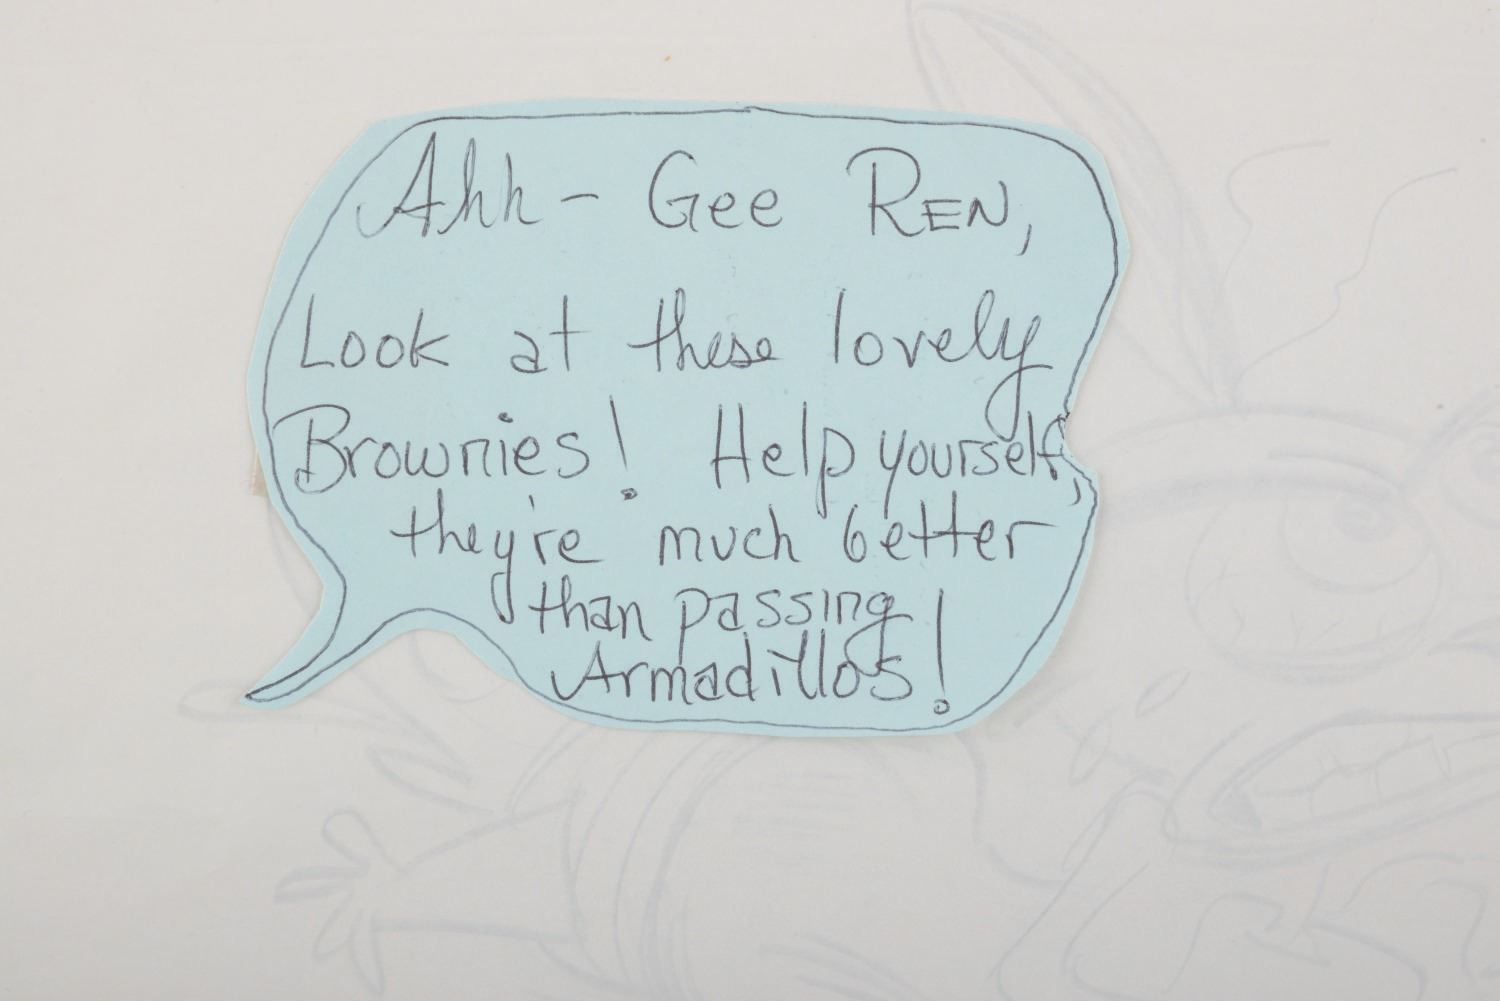 Ahh - Gee REN,
Look at these lovely
Brownies! Help yourself,
they're much better
than passing
Armadillos!